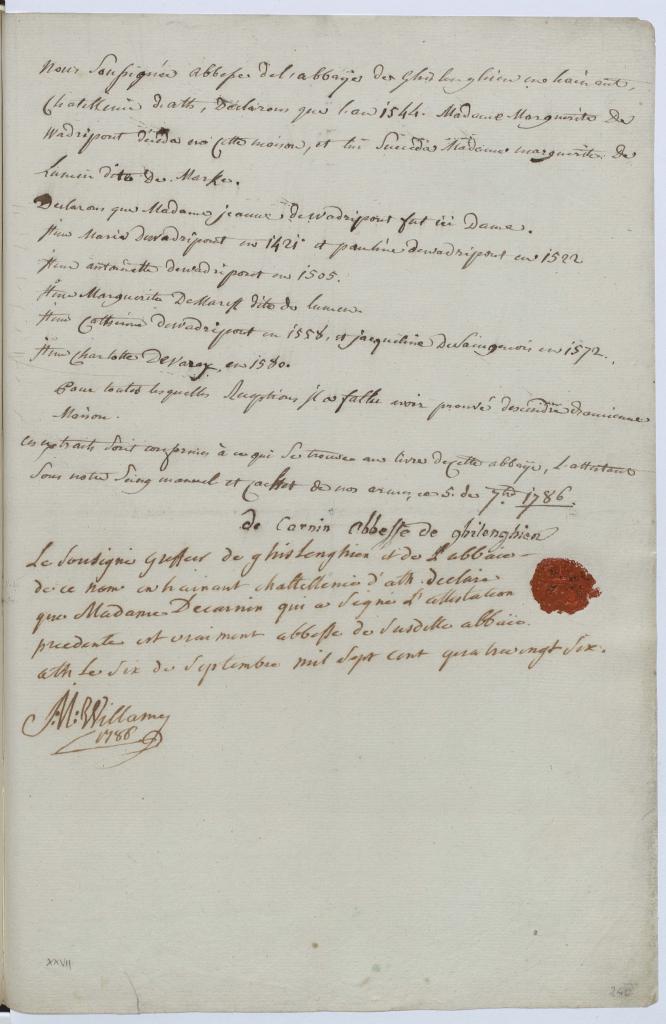 Nous Soussignée abbesse de l'abbaÿe de Ghislenghien en hainaut,
Chatellenie d'ath, Declarons que l'an 1544. Madame Marguerite De
Wadripont déceda en Cette maison, et lui Succéda Madame marguerite De
Lumen dite De Marke.
Declarons que Madame jeanne dewadripont fut ici Dame.
Item Marie dewadripont en 1421 et pauline dewadripont en 1522
Item antoinette dewadripont en 1505.
Item Marguerite De Marcke dite de lumen.
Item Catherine dewadripont en 1558, et jacqueline De Saingenois en 1572.
Item Charlotte De Varox, en 1580.
Pour toutes lesquelles Receptions il a fallu avoir prouvé descendre d'ancienne
Maison.
ces extraits sont conformes à ce qui Se trouve au livre de cette abbaye, L'attestant
Sous notre Seing manuel et Cachet de nos armes, ce 5. de 7bre 1786.
de Carnin abbesse de ghilenghien
Le Sousigné Greffier de ghislenghien et de L'abbaie
de ce nom en hainant chattellenie d'ath declare
que Madame Decarnin qui a Signé L'attestation
precedente est vraiment abbesse de Susditte abbaïe.
ath Le Six de Septembre mil Sept Cent quatrevingt Six.
A: J: Willamez
1786
XXVII
240